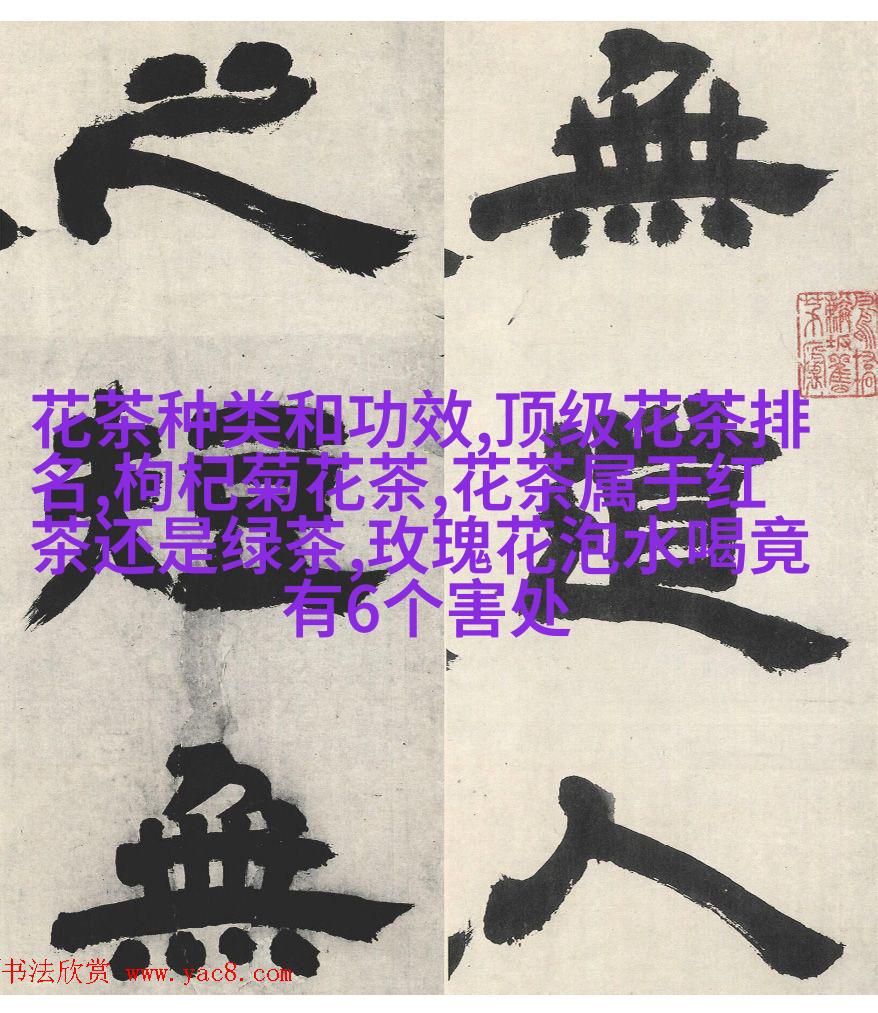 無道人
之短無
花茶种类和功效,顶级花茶排
名,枸杞菊花茶,花茶属于红
茶还是绿茶,玫瑰花泡水喝竟
有6个害处
书法欣赏 www.yac8.com